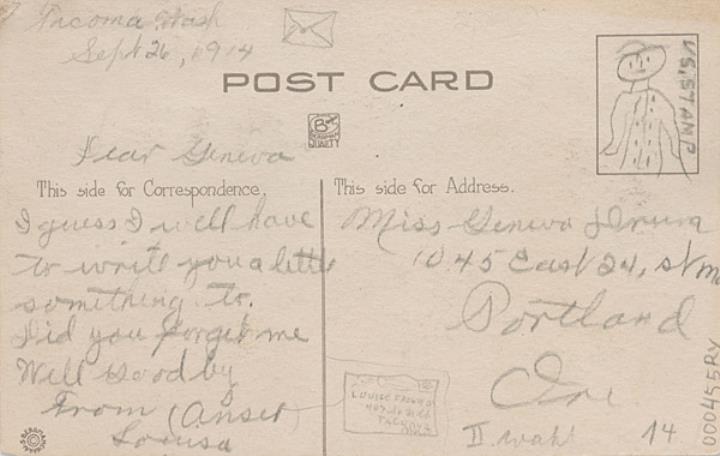 Tacoma Wash
Sept 26, 1914
POST CARD
U.S. STAMP
B
QUALITY
Dear Geneva
This side for Correspondence.
I guess I well have
to write you a letter
something to.
Did you forget me
Well Good by
From (Anser)
Louisa
This side for Address.
Miss Geneva
1045 East 24, st
Portland
Ore
LOUISE
TACOMA
II. wahl 14
000455RV